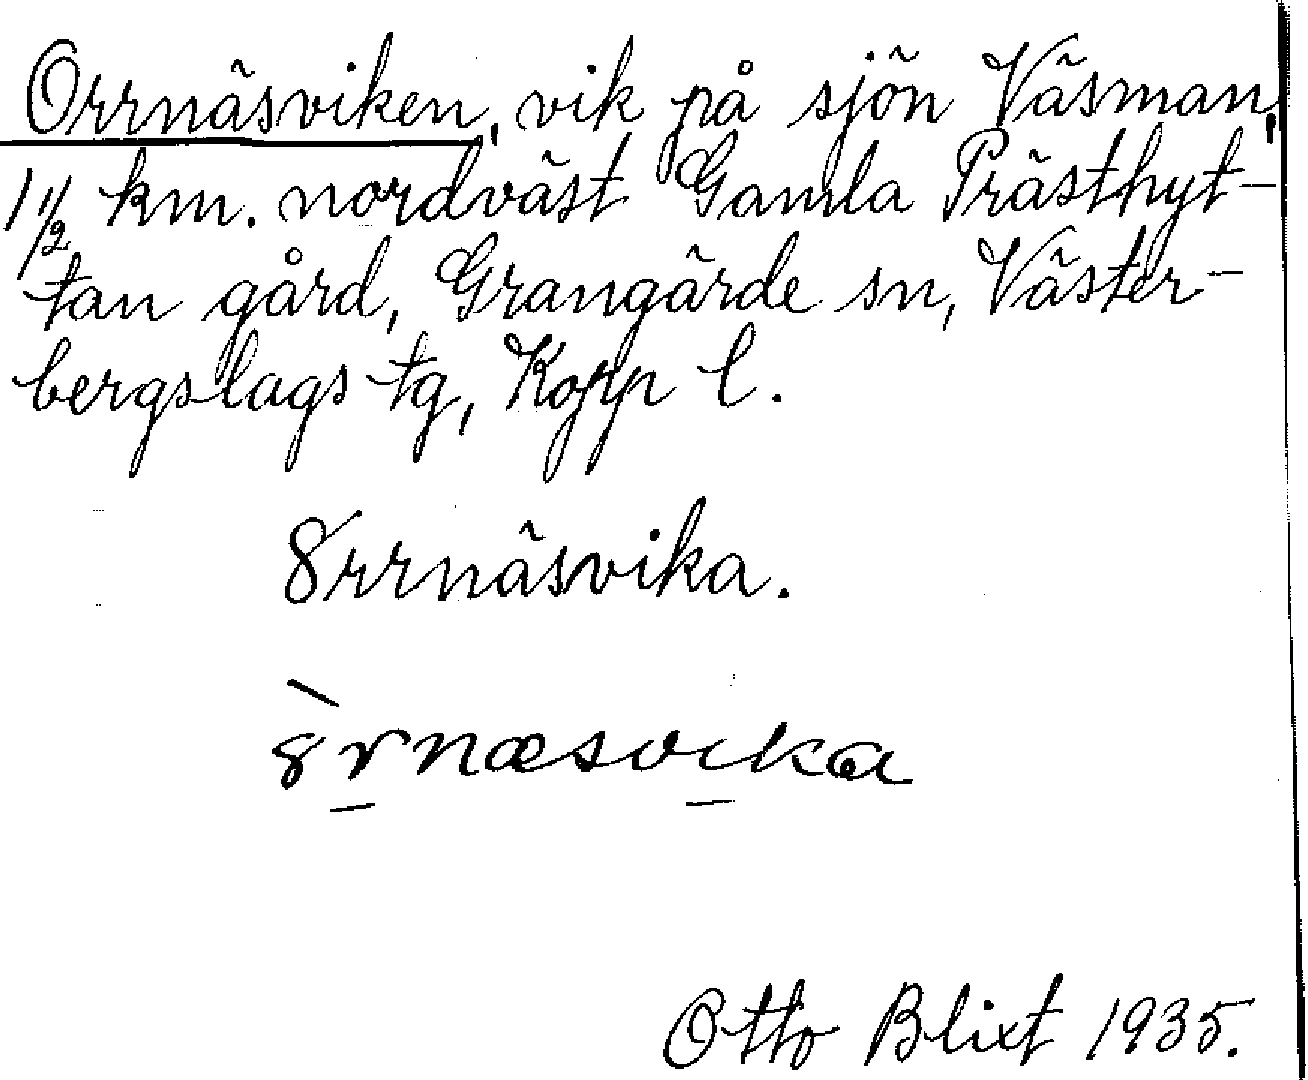 Orrnäsviken, vik på sjön Väsman,
1 1/2 km. nordväst Gamla Prästhyt-
tan gård, Grangärde sn, Väster-
bergslags tg, Kopp l.
8rrnäsvika.
8̀r̲næsvi̲ka
Otto Blixt 1935.